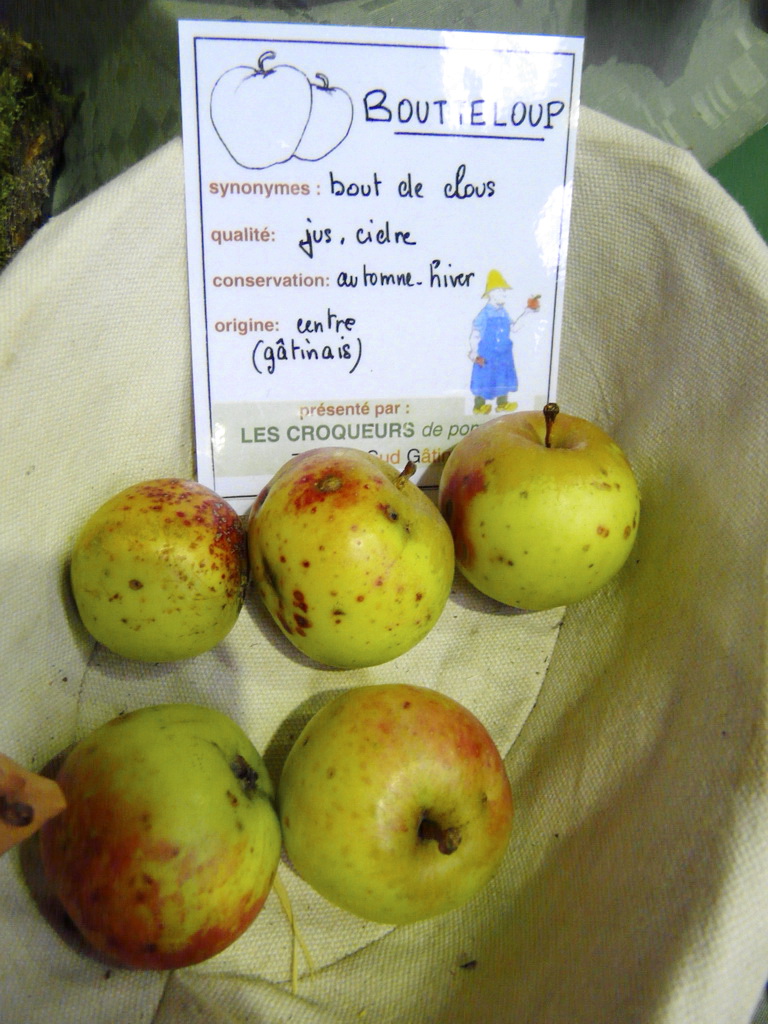 BOUTTELOUP
synonymes : bout de clous
qualité: jus, cidre
conservation: automne-hiver
origine: centre
(gâtinais)
présenté par :
LES CROQUEURS de
Sud